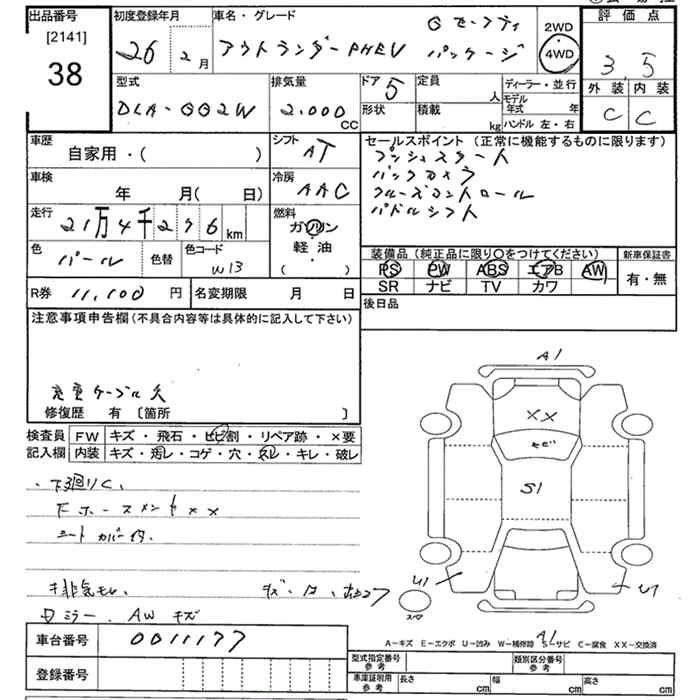 出品番号 初度登録年月 車名・グレード 評価点
[2141] 38 26 年 2月 アウトランダーPHEV Gセーフティパッケージ 2WD 4WD 3.5
型式 排気量 ドア 5 定員 人 ディーラー・並行 外装 内装
DLA-GG2W 2.000 CC 形状 積載 kg モデル年式 年 ハンドル 左・右 C C
車歴 自家用・( ) シフト AT セールスポイント(正常に機能するものに限ります)
プッシュスタート
バックカメラ
クルーズコントロール
パドルシフト
車検 年 月( 日) 冷房 AAC
走行 21万4千276km 燃料 ガソリン・軽油・( )
色 パール 色替 色コード W13
装備品(純正品に限り〇をつけてください) 新車保証書
PS PW ABS エアB AW 有・無
SR ナビ TV カワ
R券 11,100円 名変期限 月 日 後日品
注意事項申告欄(不具合内容等は具体的に記入して下さい)
充電ケーブル欠
修復歴 有 〔箇所 〕
検査員記入欄 FW キズ・飛石・ヒビ割・リペア跡・×要
内装 キズ・汚レ・コゲ・穴・スレ・キレ・破レ
A1
XX
S1
U1
U1
A1
シートカバー付
ミラー. AW キズ
A-キズ E-エクボ U-凹み W-補修跡 S-サビ C-腐食 XX-交換済
車台番号 0011177
型式指定番号 参考 類別区分番号 参考
登録番号
車庫証明用 参考 長さ cm 幅 cm 高さ cm